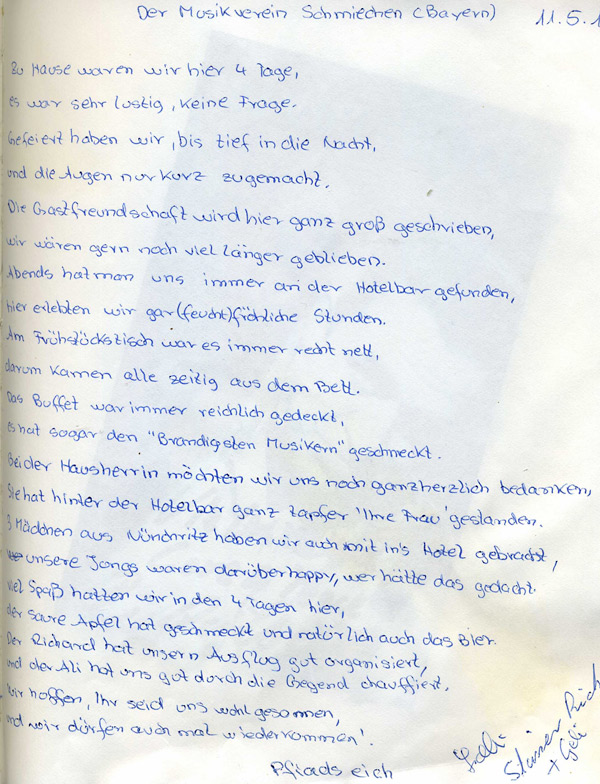 Der Musikverein Schmiechen (Bayern) 11.5.1
Zu Hause waren wir hier 4 Tage,
es war sehr lustig, keine Frage.
Gefeiert haben wir, bis tief in die Nacht,
und die Augen nur kurz zugemacht.
Die Gastfreundschaft wird hier ganz groß geschrieben,
wir wären gern noch viel länger geblieben.
Abends hat man uns immer an der Hotelbar gefunden,
hier erlebten wir gar (feucht)fröhliche Stunden.
Am Frühstückstisch war es immer recht nett,
darum kamen alle zeitig aus dem Bett.
Das Buffet war immer reichlich gedeckt,
es hat sogar den "Brandigsten Musikern" geschmeckt.
Bei der Hausherrin möchten wir uns noch ganz herzlich bedanken,
Sie hat hinter der Hotelbar ganz tapfer 'Ihre Frau' gestanden.
3 Mädchen aus Nünchritz haben wir auch mit in's Hotel gebracht,
unsere Jungs waren darüber happy, wer hätte das gedacht.
viel Spaß hatten wir in den 4 Tagen hier,
der saure Apfel hat geschmeckt und natürlich auch das Bier.
Der Richard hat unsern Ausflug gut organisiert,
und der Ali hat uns gut durch die Gegend chauffiert.
Wir hoffen, Ihr seid uns wohl gesonnen,
und wir dürfen auch mal wiederkommen!
Pfiads eich
+ Geli